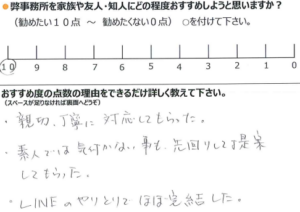 ●弊事務所を家族や友人・知人にどの程度おすすめしようと思いますか？
（勧めたい１０点 ～ 勧めたくない０点） ○を付けて下さい。
10 9 8 7 6 5 4 3 2 1 0
おすすめ度の点数の理由をできるだけ詳しく教えて下さい。
（スペースが足りなければ裏面へどうぞ）
・親切、丁寧に対応してもらった。
・素人では気付かない事も、先回りして提案
してもらった。
・LINEのやりとりでほぼ完結した。